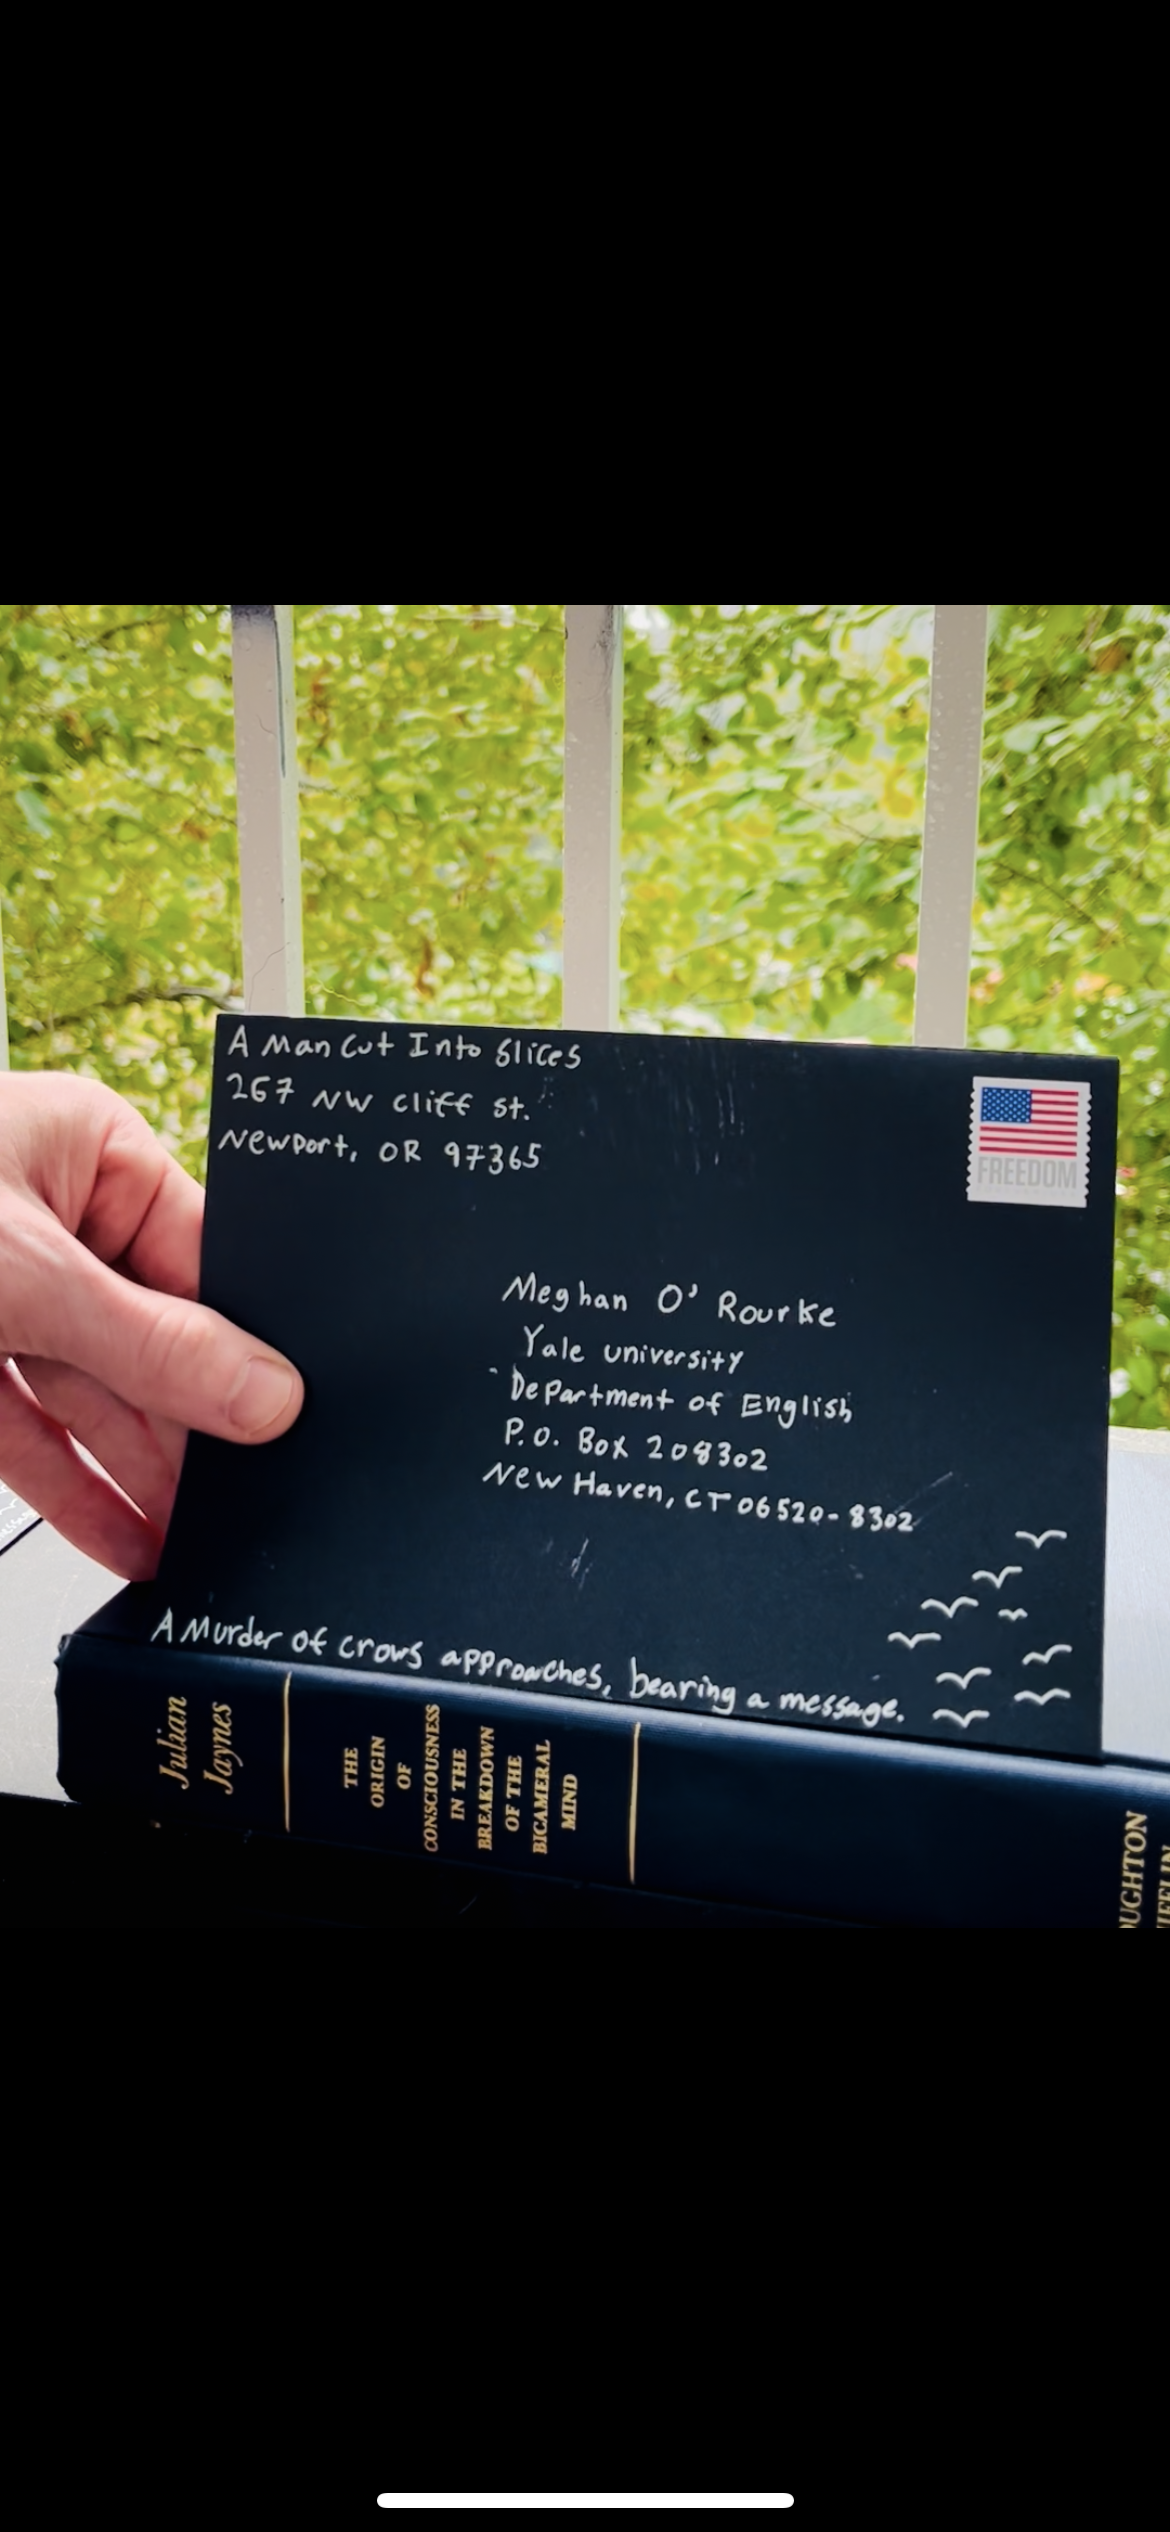 A Man Cut Into Slices
267 NW Cliff St.
Newport, OR 97365
FREEDOM
Meghan O' Rourke
Yale University
Department of English
P.O. Box 208302
New Haven, CT 06520-8302
A Murder of crows approaches, bearing a message.
Julian
Jaynes
THE
ORIGIN
OF
CONSCIOUSNESS
IN THE
BREAKDOWN
OF THE
BICAMERAL
MIND
OUGHTON